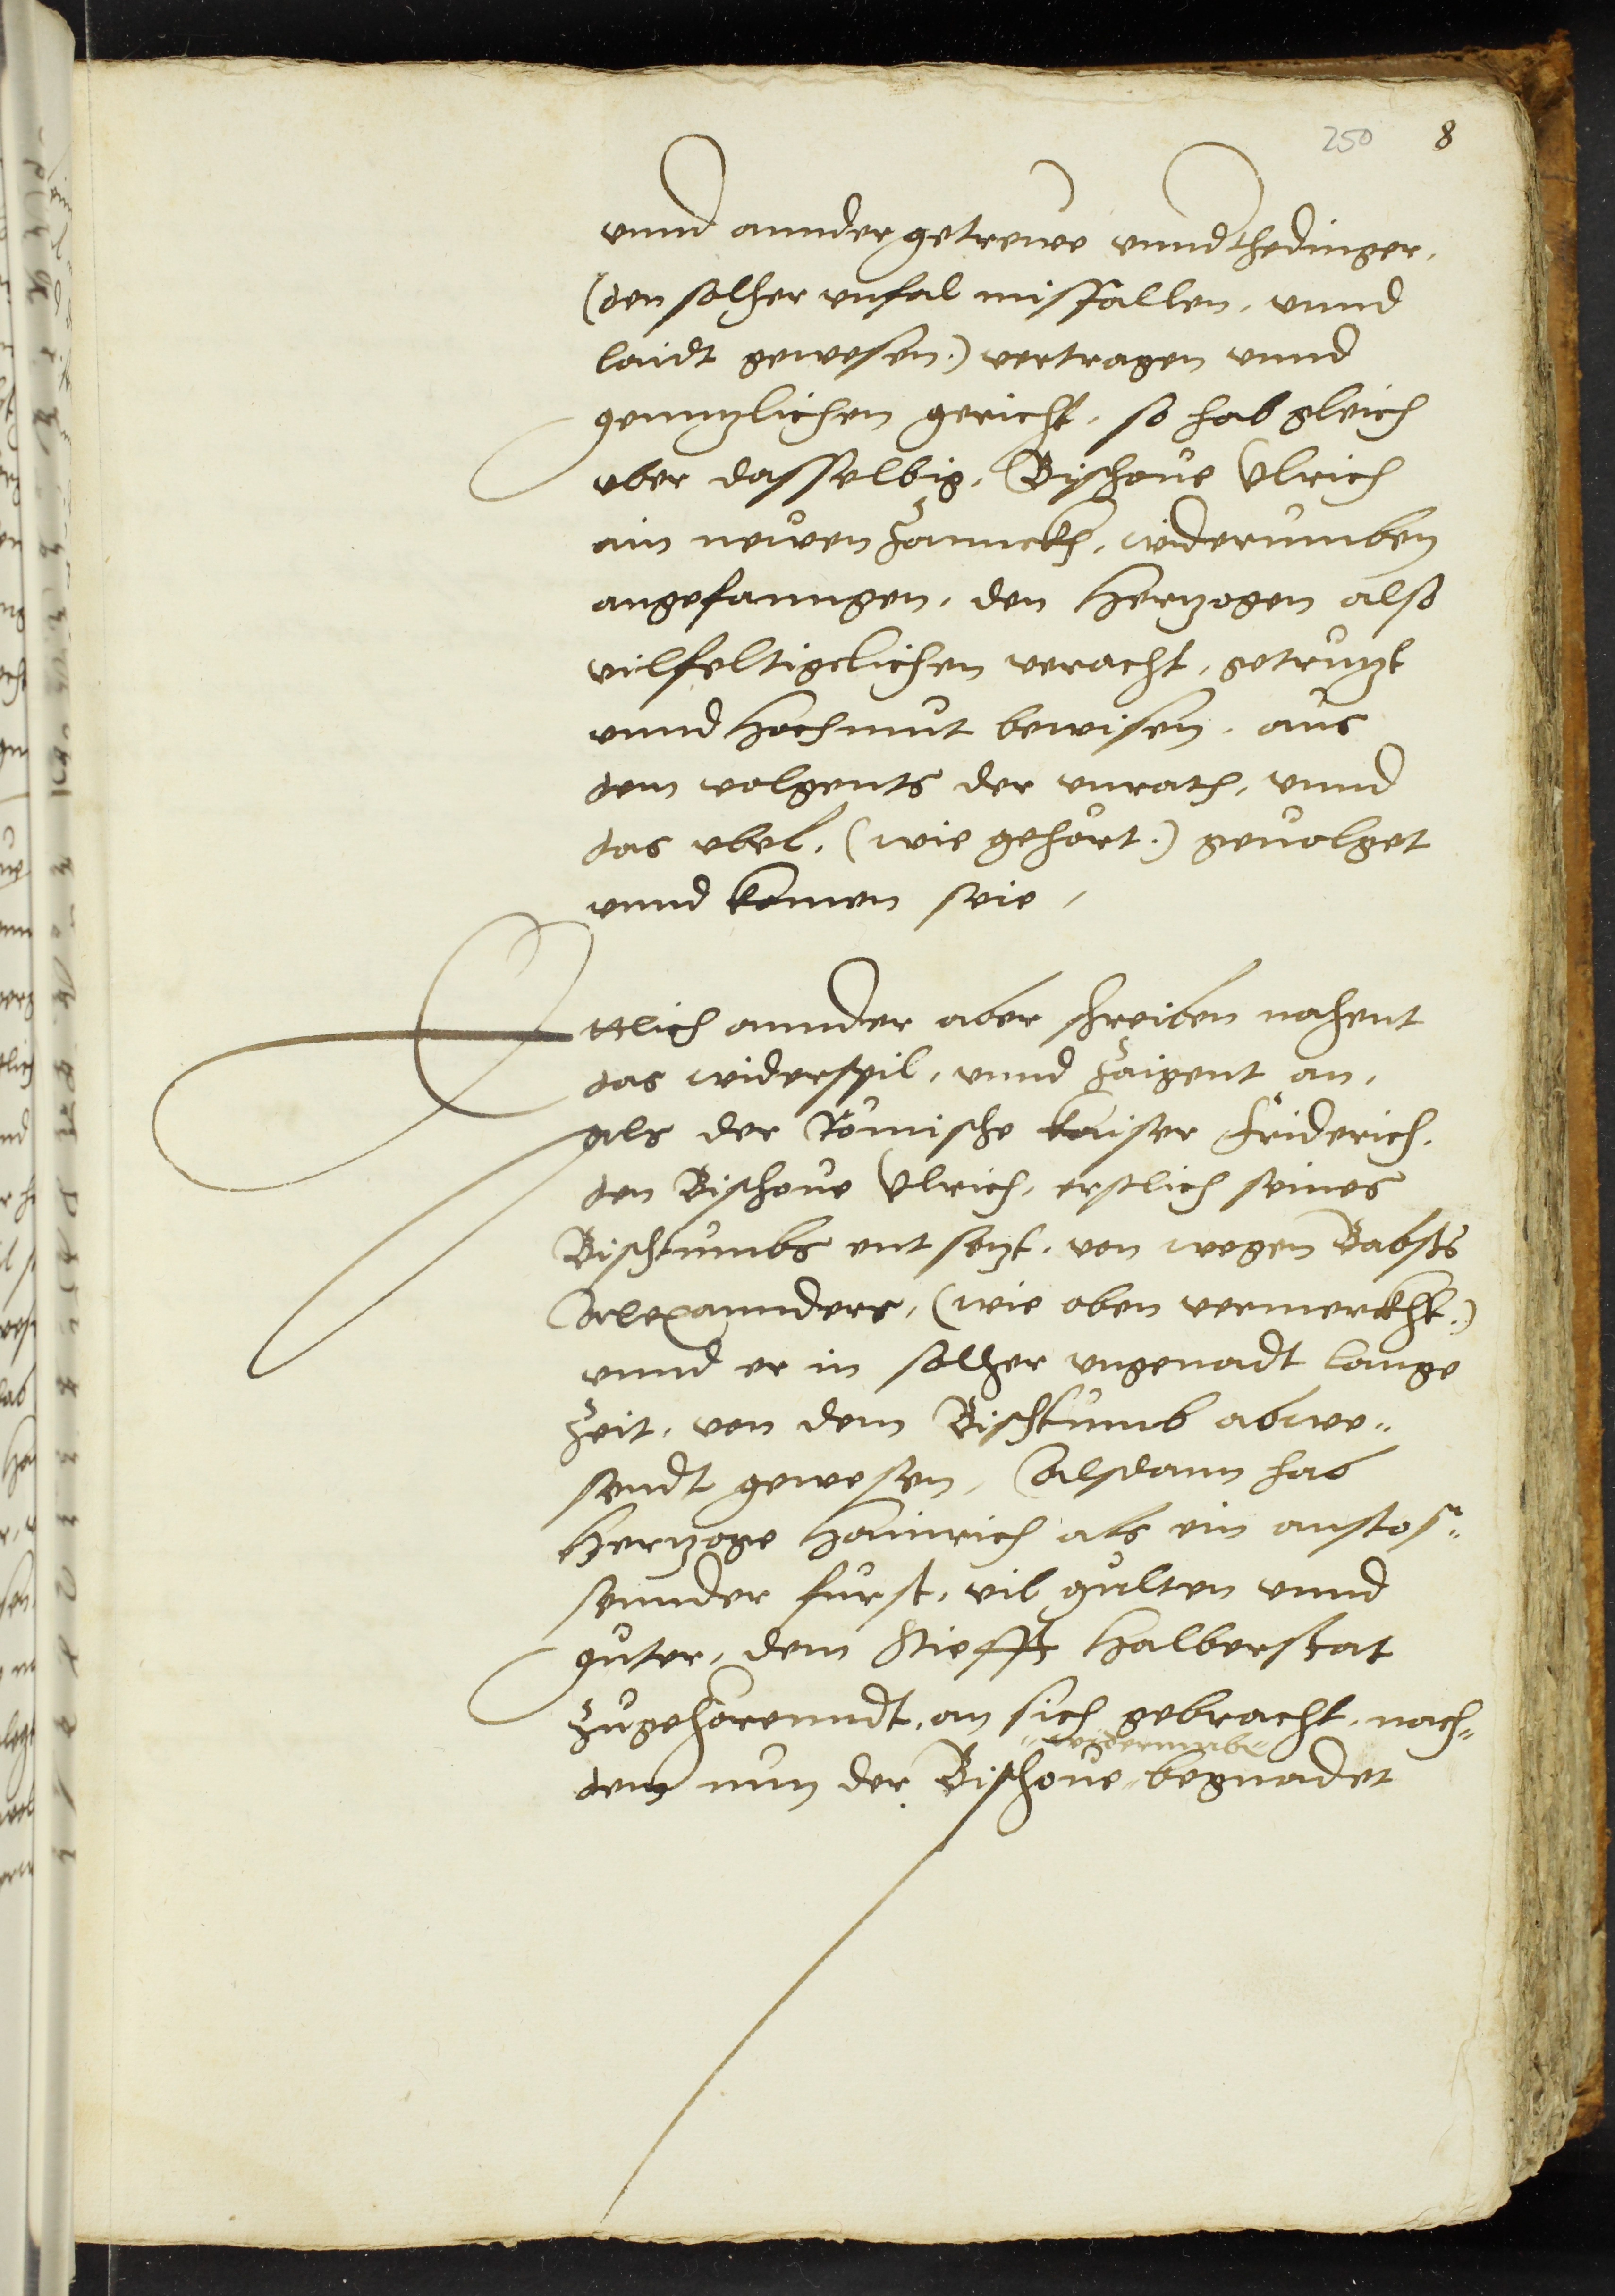 250 8
vnnd annder getrewe vnndthedinger,
(den solher vnfal misfallen, vnnd
laidt gewesen.) vertragen vnnd
genntzlichen gericht, so hab gleich
vber dasselbig, Bischoue Vlrich
ain newen Zannckh, widerumben
angefanngen, den Hertzogen also
vilfeltigclichen veracht, getrutzt
vnnd Hochmut bewisen, aus
dem volgents der vnrath, vnnd
das vbel, (wie gehört.) geuolget
vnnd komen seie,
Ettlich annder aber schreiben nahent
das widerspil, vnnd Zaigent an,
als der Römische kaiser Friderich,
den Bischoue Vlrich, erstlich seines
Bischtumbs entsetzt, von wegen Babsts
Alexannders, (wie oben vermerckht.)
vnnd er in solher vngenadt lange
Zeit, von dem Bischtumb abwe-
sendt gewesen, Alsdann hab
Hertzoge Hainrich als ein anstos-
sennder furst, vil gulten vnnd
guter, dem Stiefft Halberstat
Zugehörenndt, an sich gebracht, nach-
widerumb
dem nun der Bischoue begnadet